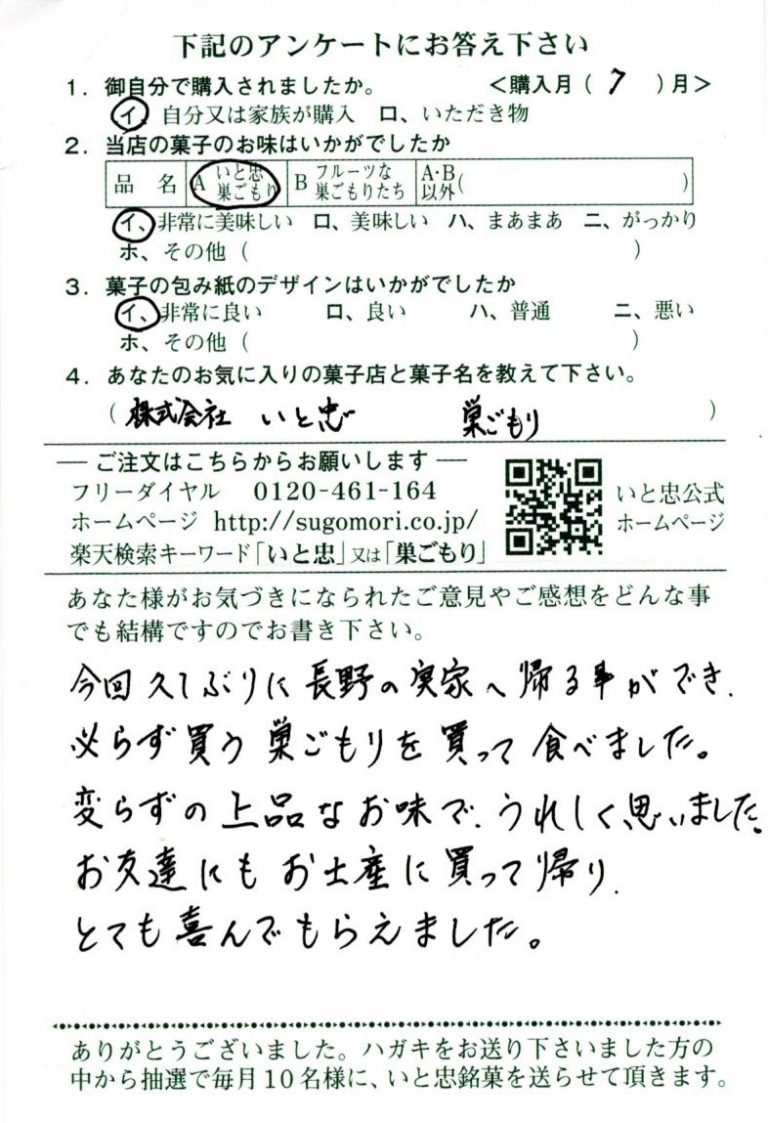 下記のアンケートにお答え下さい
1. 御自分で購入されましたか。 <購入月( 7 )月>
イ、自分又は家族が購入 ロ、いただき物
2. 当店の菓子のお味はいかがでしたか
品 名 A いと忠 巣ごもり B フルーツな 巣ごもりたち A・B 以外( )
イ、非常に美味しい ロ、美味しい ハ、まあまあ ニ、がっかり
ホ、その他 ( )
3. 菓子の包み紙のデザインはいかがでしたか
イ、非常に良い ロ、良い ハ、普通 ニ、悪い
ホ、その他 ( )
4. あなたのお気に入りの菓子店と菓子名を教えて下さい。
( 株式会社 いと忠 巣ごもり )
― ご注文はこちらからお願いします ―
フリーダイヤル 0120-461-164
ホームページ http://sugomori.co.jp/
楽天検索キーワード「いと忠」又は「巣ごもり」
いと忠公式
ホームページ
あなた様がお気づきになられたご意見やご感想をどんな事
でも結構ですのでお書き下さい。
今回久しぶりに長野の実家へ帰る事ができ、
必らず買う巣ごもりを買って食べました。
変らずの上品なお味で、うれしく思いました。
お友達にもお土産に買って帰り、
とても喜んでもらえました。
ありがとうございました。ハガキをお送り下さいました方の
中から抽選で毎月10名様に、いと忠銘菓を送らせて頂きます。